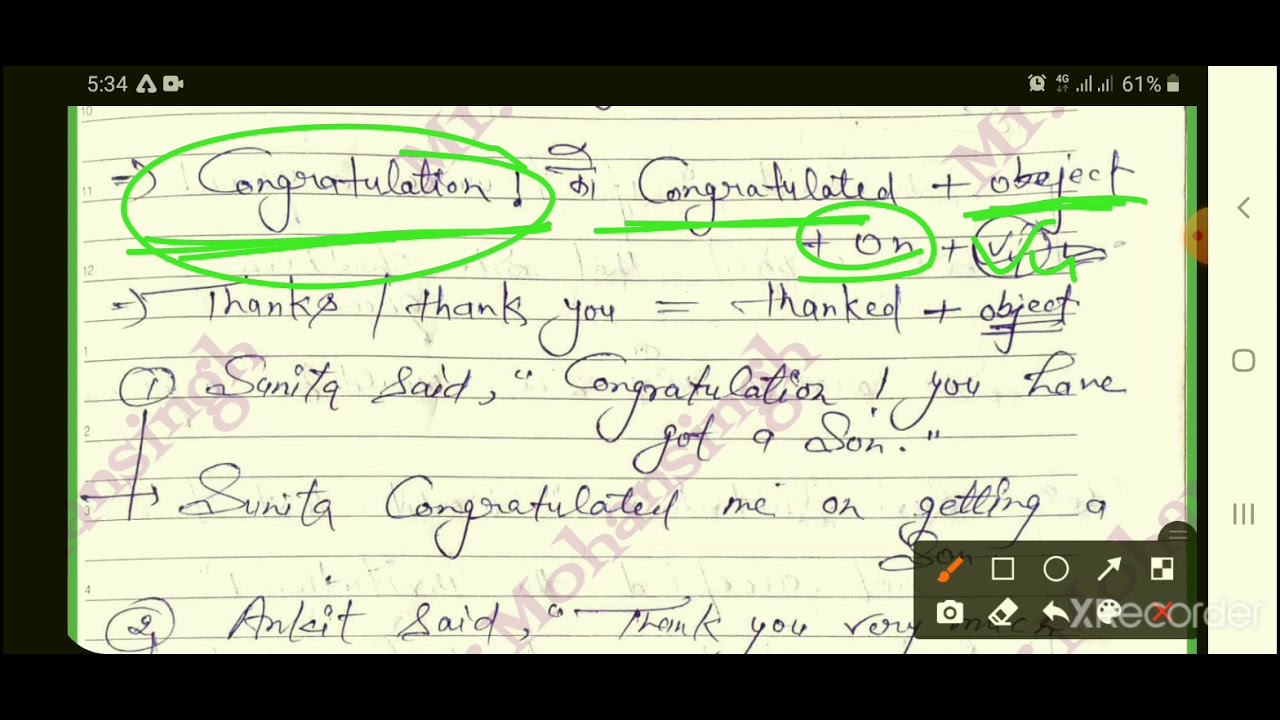 5:34 4G 61%
⇒ Congratulation! का Congratulated + object
+ on +
⇒ Thanks / thank you = thanked + object
① Sunita said, "Congratulation! you have
got a son."
→ Sunita Congratulated me on getting a
Son
② Ankit said, "Thank you very much
XRecorder
Mr.
Mr.
Mohansingh
ansingh